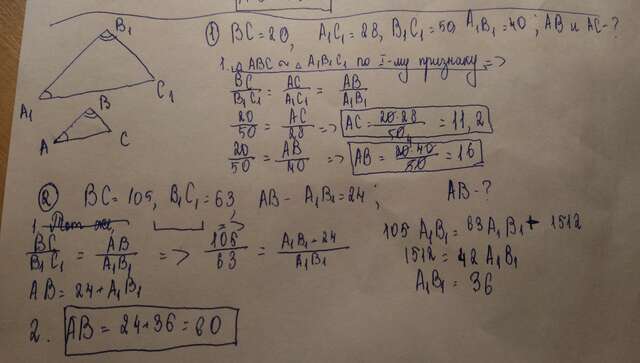 ① BC = 20, A₁C₁ = 28, B₁C₁ = 50, A₁B₁ = 40; AB и AC - ?
1. △ ABC ~ △ A₁B₁C₁ по I-му признаку =>
BC/B₁C₁ = AC/A₁C₁ = AB/A₁B₁
20/50 = AC/28 => AC = 20·28/50 = 11,2
20/50 = AB/40 => AB = 20·40/50 = 16
B₁
A₁
C₁
B
A
C
② BC = 105, B₁C₁ = 63, AB - A₁B₁ = 24; AB - ?
1. Тот же, =>
BC/B₁C₁ = AB/A₁B₁ => 105/63 = A₁B₁ + 24/A₁B₁
AB = 24 + A₁B₁
105 A₁B₁ = 63 A₁B₁ + 1512
1512 = 42 A₁B₁
A₁B₁ = 36
2. AB = 24 + 36 = 60